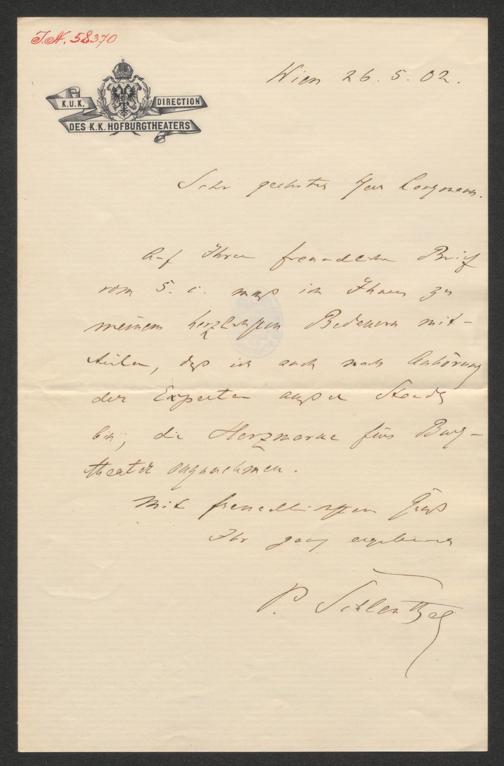 J.N. 58370
K.U.K. DIRECTION
DES K.K. HOFBURGTHEATERS
Wien 26. 5. 02.
Sehr geehrter Herr
Auf Ihren freundlichen Brief
vom 5. c. muß ich Ihnen zu
meinem herzlichsten Bedauern mit-
teilen, daß ich auch nach Anhörung
der Experten außer Stande
bin, die Herznarne fürs Burg-
theater anzunehmen.
Mit freundlichstem Gruß
Ihr ganz ergebener
P. Schlenther